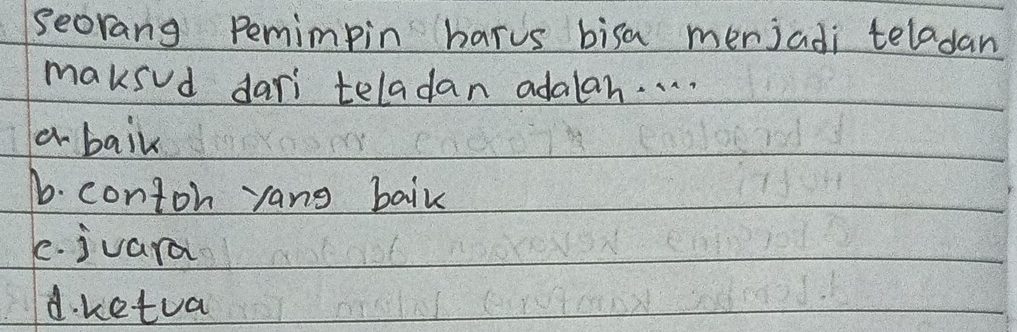 seorang Pemimpin harus bisa menjadi teladan
maksud dari teladan adalah....
a. baik
b. contoh yang baik
c. juara
d. ketua